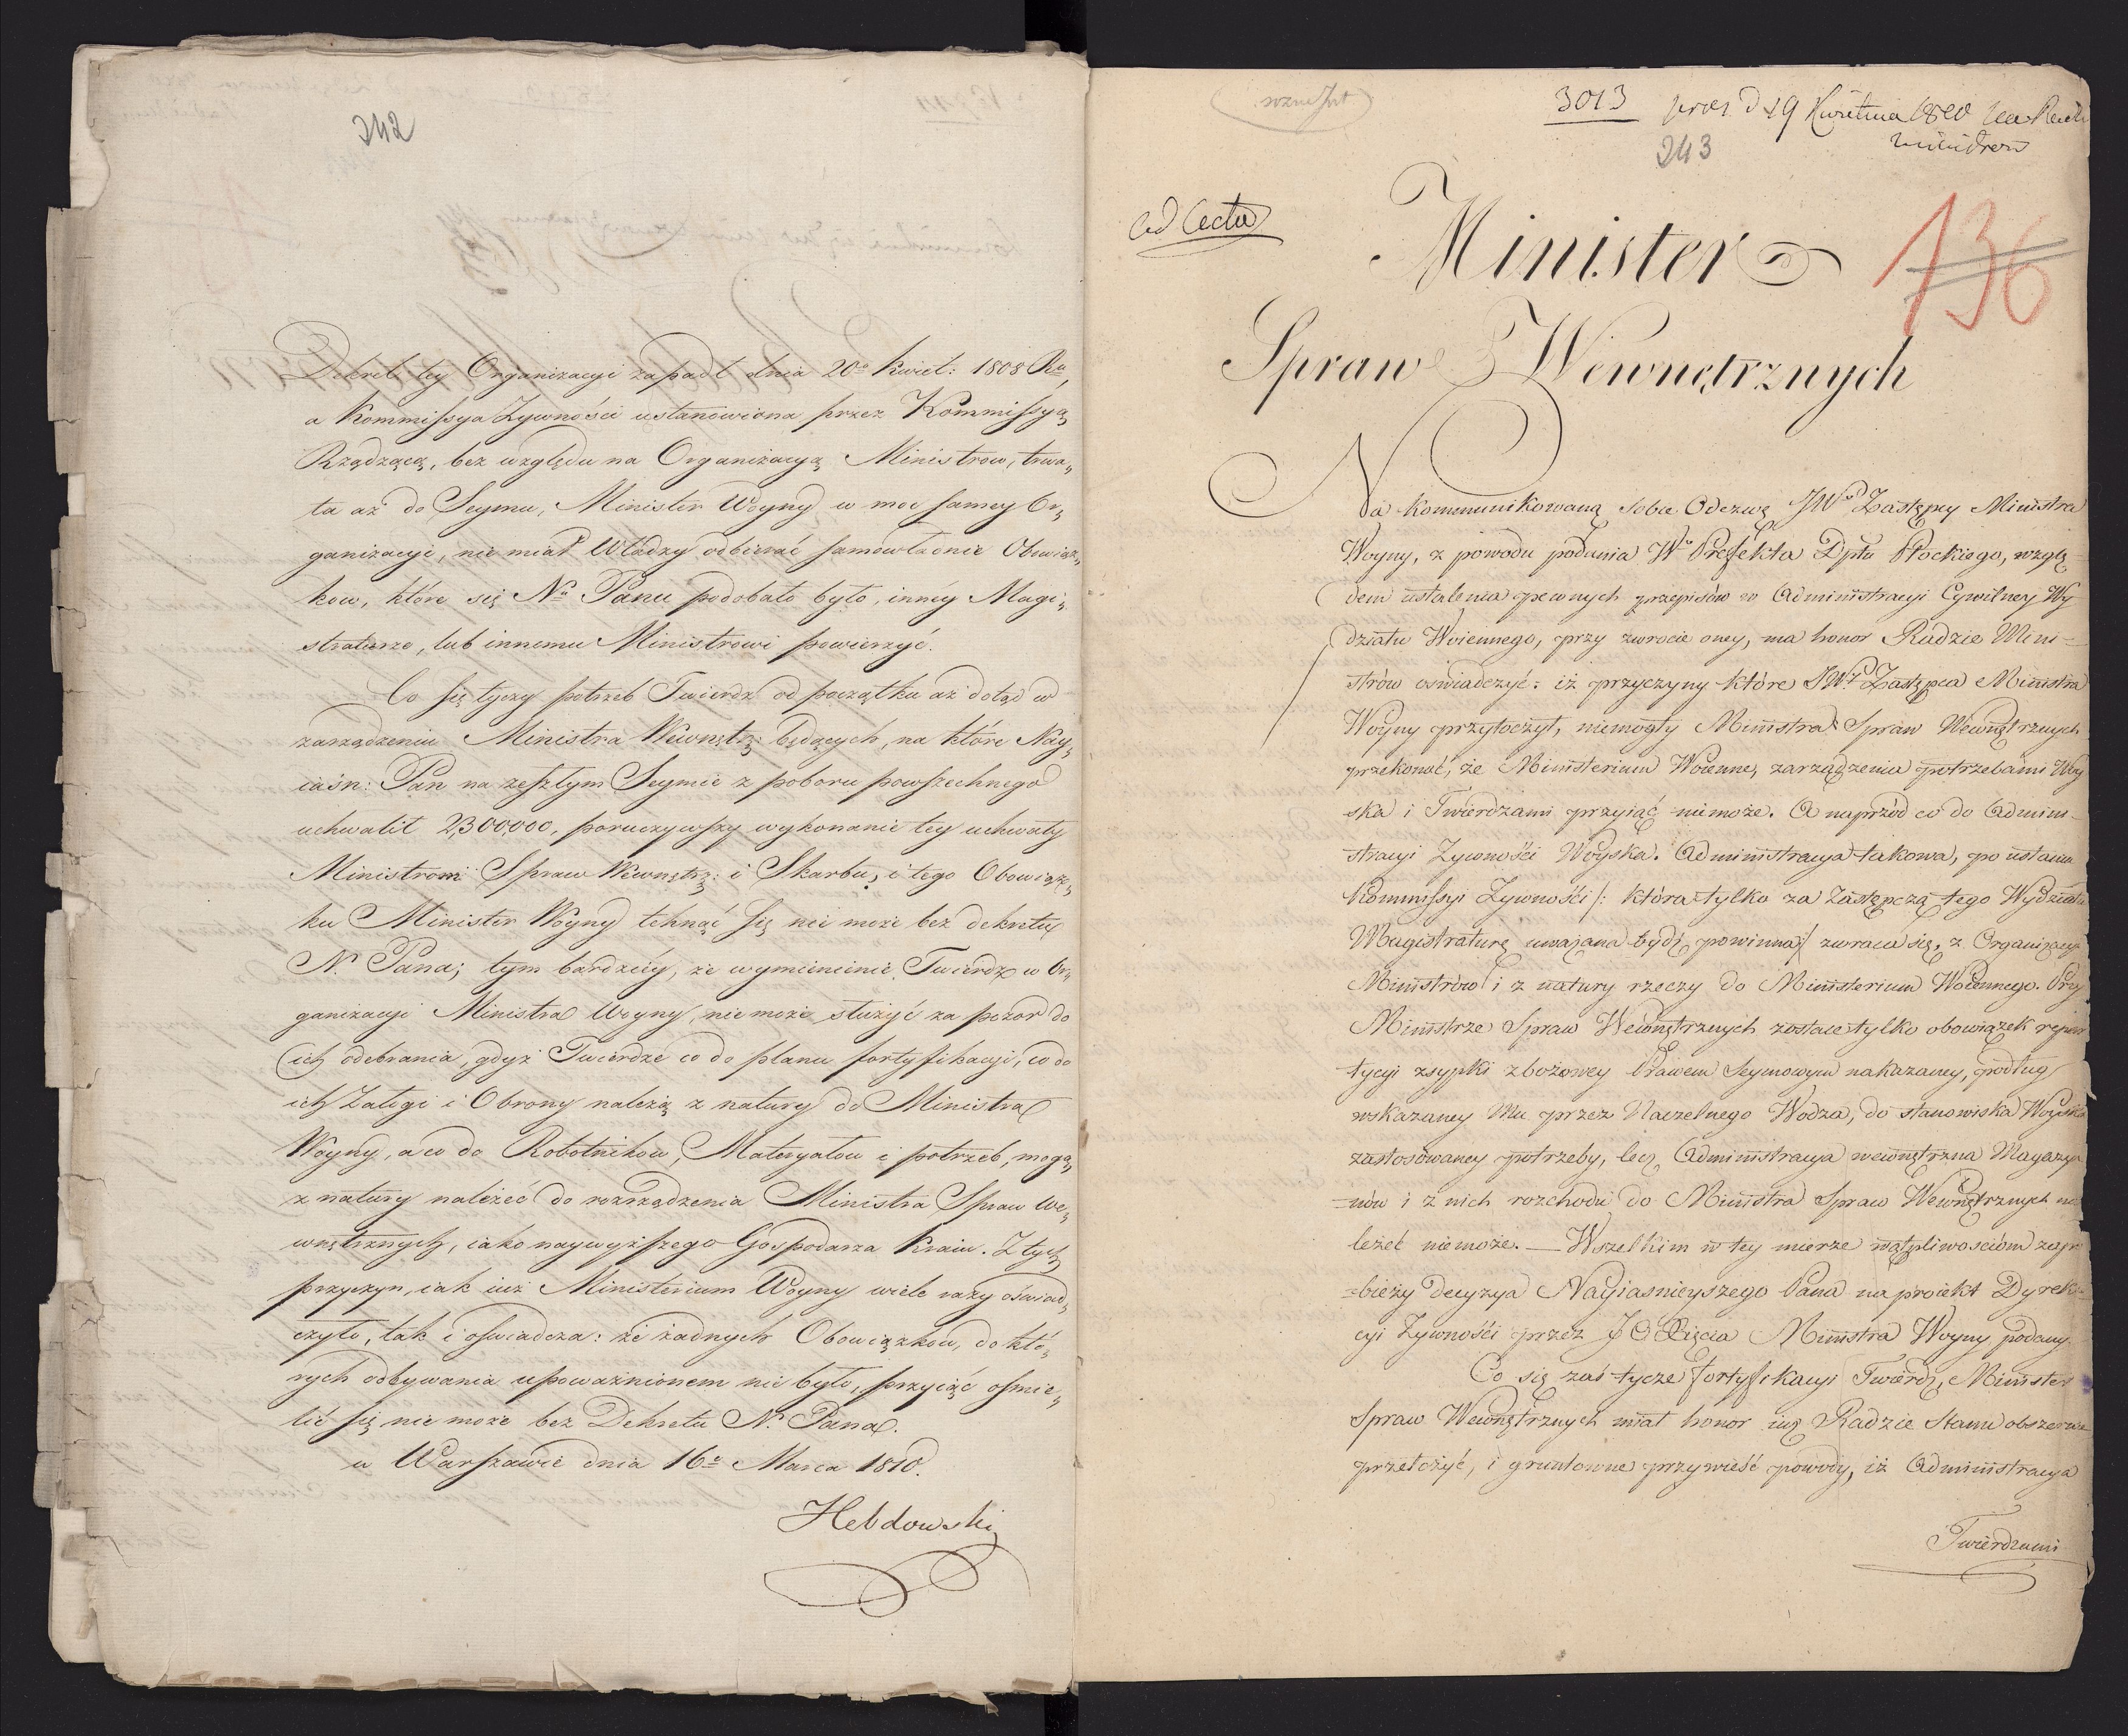 242
Dekret tey Organizacyi zapadł dnia 20º Kwiet: 1808 Ru,
a Kommissya Żywności ustanowiona przez Kommissyą
Rządzącą, bez względu na Organizacyą Ministrow, trwa„
ła aż do Seymu, Minister Woyny w moc samey Or„
ganizacyi, nie miał Władzy odbierać samowładnie Obowiąz„
kow, które się Nu Panu podobało było, inney Magi„
straturze, lub innemu Ministrowi powierzyć.
Co się tyczy potrzeb Twierdz od początku aż dotąd w
zarządzeniu Ministra Wewnętrz: będących, na które Nay„
iaśn: Pan na zeszłym Seymie z poboru powszechnego
uchwalił 2,300,000, poruczywszy wykonanie tey uchwały
Ministrom Spraw Wewnętrz: i Skarbu, i tego Obowiąz„
ku Minister Woyny tchnąć się nie może bez dekretu
N. Pana; tym bardziéy, że wymienienie Twierdz w Or„
ganizacyi Ministra Woyny, nie może służyć za pozor do
ich odebrania, gdyż Twierdze co do planu fortyfikacyi, co do
ich Załogi i Obrony należą z natury do Ministra
Woyny, a co do Robotników, Materyałow i potrzeb, mogą
z natury należeć do rozrządzenia Ministra Spraw We„
wnętrznych, iako naywyższego Gospodarza Kraiu. Z tych
przyczyn, iak iuż Ministerium Woyny wiele razy oświad„
czyło, tak i oświadcza: że żadnych Obowiązkow, do któ„
rych odbywania upoważnionem nie było, przyiąć ośmie„
lić się nie może bez Dekretu N. Pana.
w Warszawie dnia 16º Marca 1810.
Hebdowski
3013 pres. d 19 Kwietnia 1810 na Radzie
ministrow
243
ad acta
136
Minister
Spraw Wewnętrznych
Na kommunikowaną sobie Odezwę JWo Zastępcy Ministra
Woyny, z powodu podania Wo Prefekta Dptu Płockiego, wzglę=
dem ustalenia pewnych przepisów w Administracyi Cywilney Wy
działu Woiennego, przy zwrocie oney, ma honor Radzie Mini=
strów oświadczyć: iż przyczyny które JWy Zastępca Ministra
Woyny przytoczył, niemogły Ministra Spraw Wewnętrznych
przekonać, że Ministerium Woienne, zarządzenia potrzebami Woy
ska i Twierdzami przyiąć niemoże. A naprzód co do Admini=
stracyi Żywności Woyska. Administracya takowa, po ustaniu
Kommissyi Żywności /: która tylko za Zastępczą tego Wydziału
Magistraturę uważana bydź powinna :/ zwraca się, z Organizacyi
Ministrów i z natury rzeczy do Ministerium Woiennego. Przy
Ministrze Spraw Wewnętrznych zostaie tylko obowiązek repar
tycyi zsypki zbożowey Prawem Seymowym nakazaney, podług
wskazaney Mu przez Naczelnego Wodza, do stanowiska Woyska
zastosowaney potrzeby, lecz Administracya wewnętrzna Magazy
=nów i z nich rozchodu do Ministra Spraw Wewnętrznych na
leżeć niemoże. — Wszelkim w tey mierze wątpliwościom zapo
=bieży decyzya Nayiaśnieyszego Pana na proiekt Dyrek=
cyi Żywności przez JO Xięcia Ministra Woyny podany.
Co się zaś tycze fortyfikacyi Twierdz, Minister
Spraw Wewnętrznych miał honor iuż Radzie Stanu obszernie
przełożyć, i gruntowne przywieść powody, iż Administracya
Twierdzami